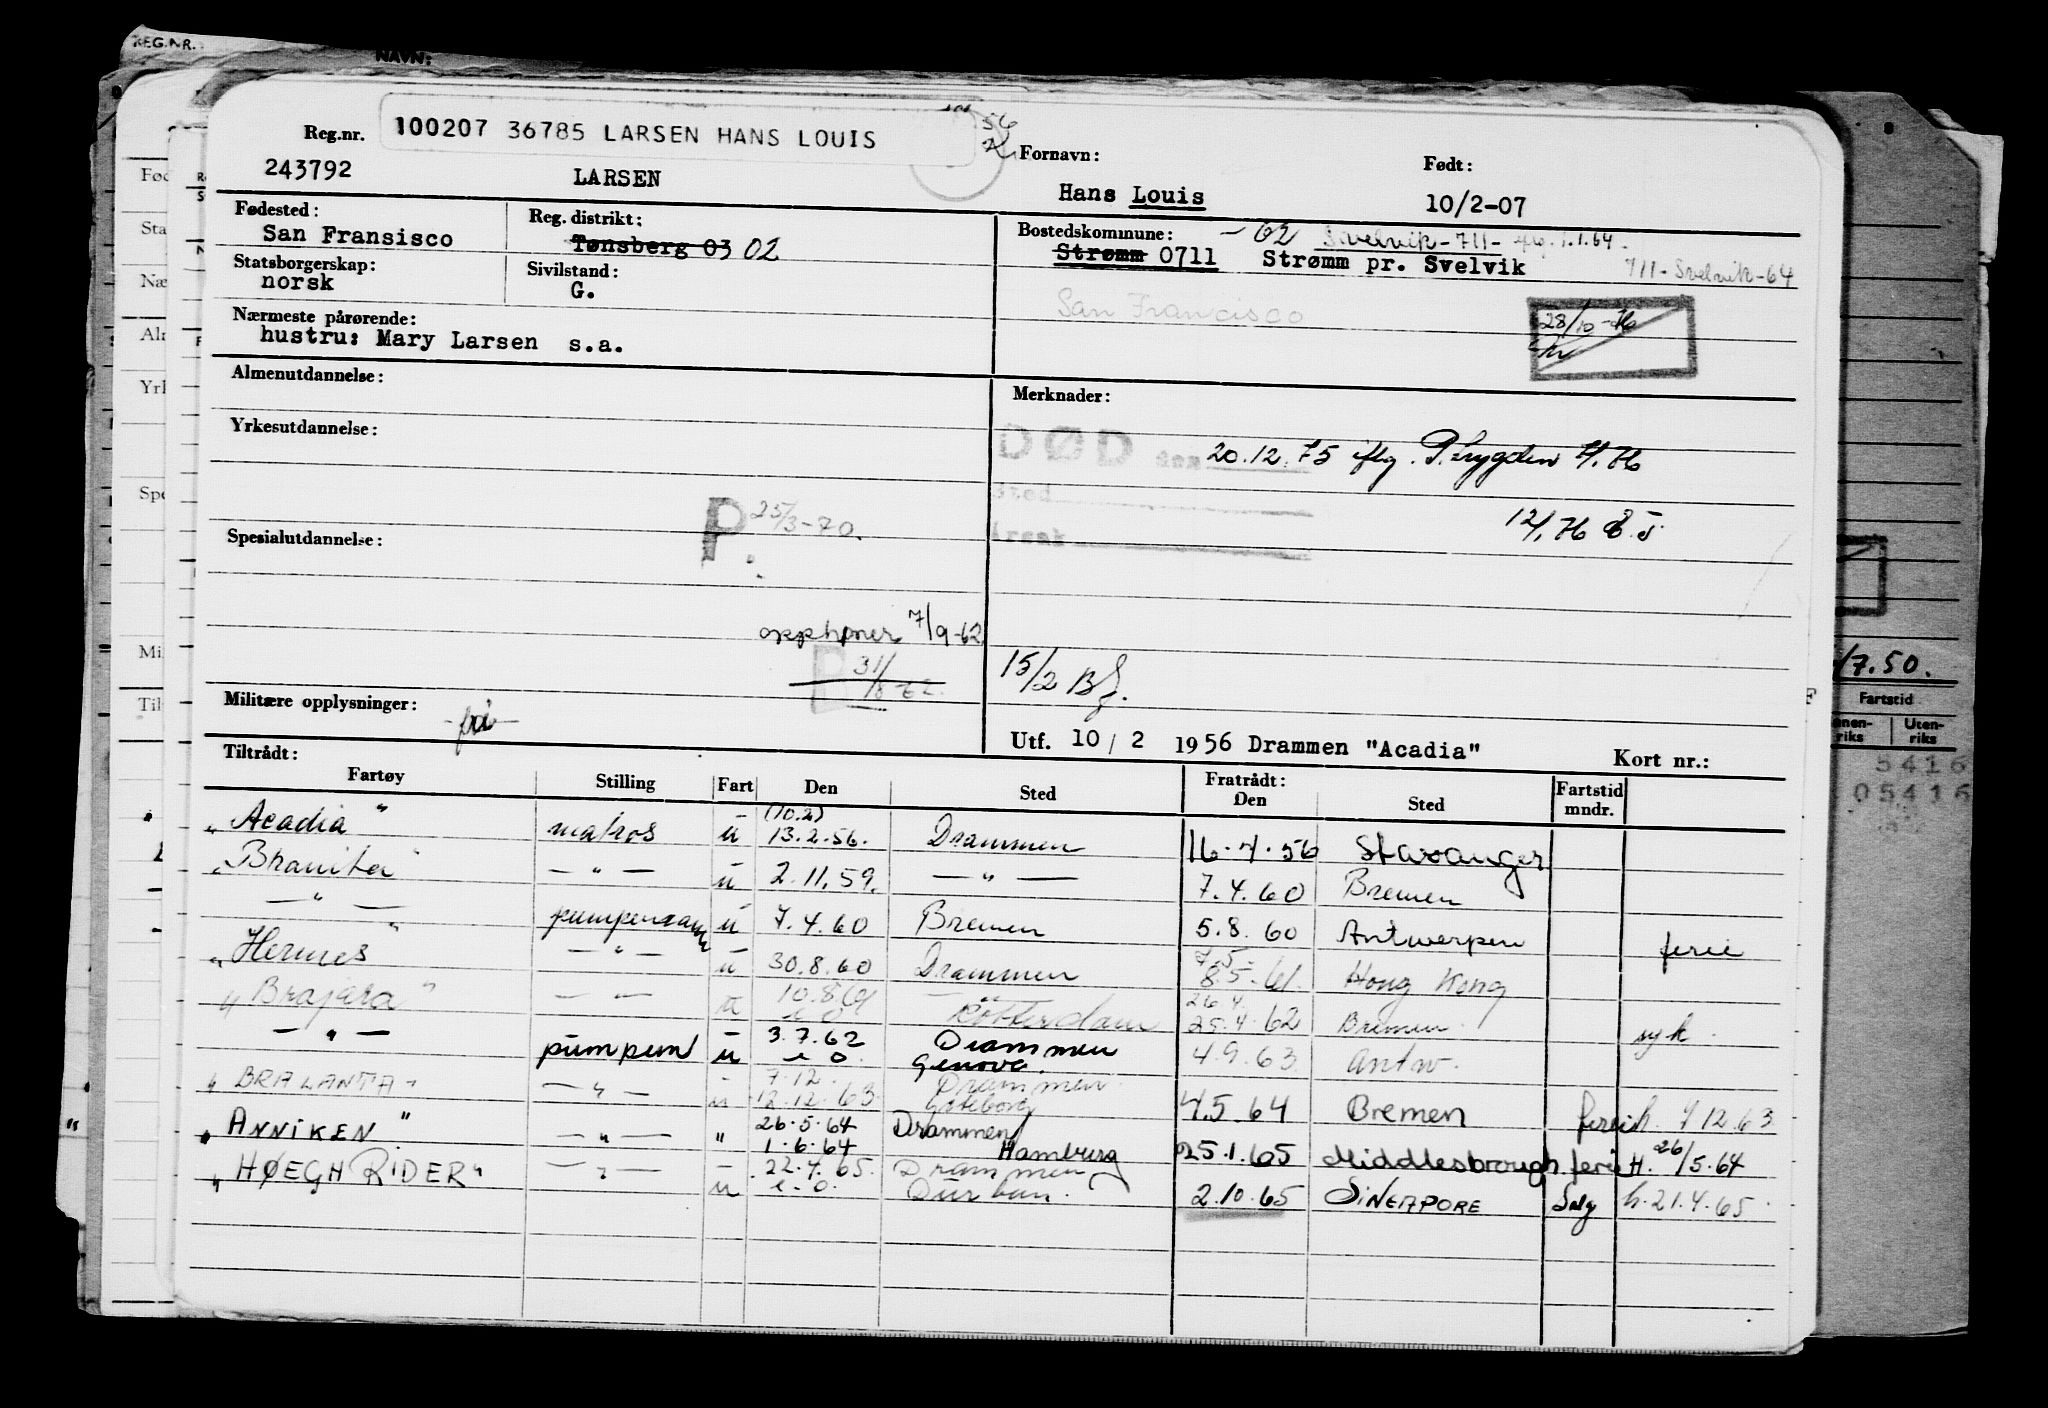 REG.NR.
NAVN:
100207 36785 LARSEN HANS LOUIS
Reg.nr.
56
Fornavn:
Født:
243792
LARSEN
Hans Louis
10/2-07
Fødested:
San Fransisco
Reg. distrikt:
Tønsberg 03 02
Bostedskommune: -62 Svelvik-711- 1.1.64.
Strømm 0711 Strømm pr. Svelvik
711-Svelvik-64
Statsborgerskap:
norsk
Sivilstand:
G.
San Francisco
Nærmeste pårørende:
hustru: Mary Larsen s.a.
28/10
Almenutdannelse:
Merknader:
Yrkesutdannelse:
DØD den 20.12.75 iflg. P.trygden
Sted
Årsak
12/.76
P 25/3-70.
Spesialutdannelse:
opphører 7/9-62
31/8 62.
15/2
Militære opplysninger:
-fri-
Utf. 10/2 1956 Drammen "Acadia"
Kort nr.:
Tiltrådt:
Fartøy
Stilling
Fart
Den
Sted
Fratrådt:
Den
Sted
Fartstid
mndr.
"Acadia" matros u (10.2) 13.2.56. Drammen 16.4.56 Stavanger
"Branita" — " — u 2.11.59. — " — 7.4.60 Bremen
— " — pumpemann u 7.4.60 Bremen 5.8.60 Antwerpen ferie
"Hermes" — " — u 30.8.60 Drammen 7.5. 8.5.61. Hong Kong
"Brajara" — " — u 10.8.61 Rotterdam 26.4. 25.4.62 Bremen. syk.
— " — pumpem u 3.7.62 Drammen Genova. 4.9.63 Antw.
"BRALANTA" — " — u 7.12. 12.12.63. Drammen Gøteborg 4.5.64 Bremen ferie h. 7/12.63
"ANNIKEN" — " — " 26.5.64 1.6.64 Drammen Hamburg 25.1.65 Middlesbrough ferie H. 26/5.64
"HØEGH RIDER" — " — u 22.4.65. Drammen Durban. 2.10.65 SINGAPORE h. 21.4.65.
/7.50.
Fartstid
Uten-
riks
5416
05416